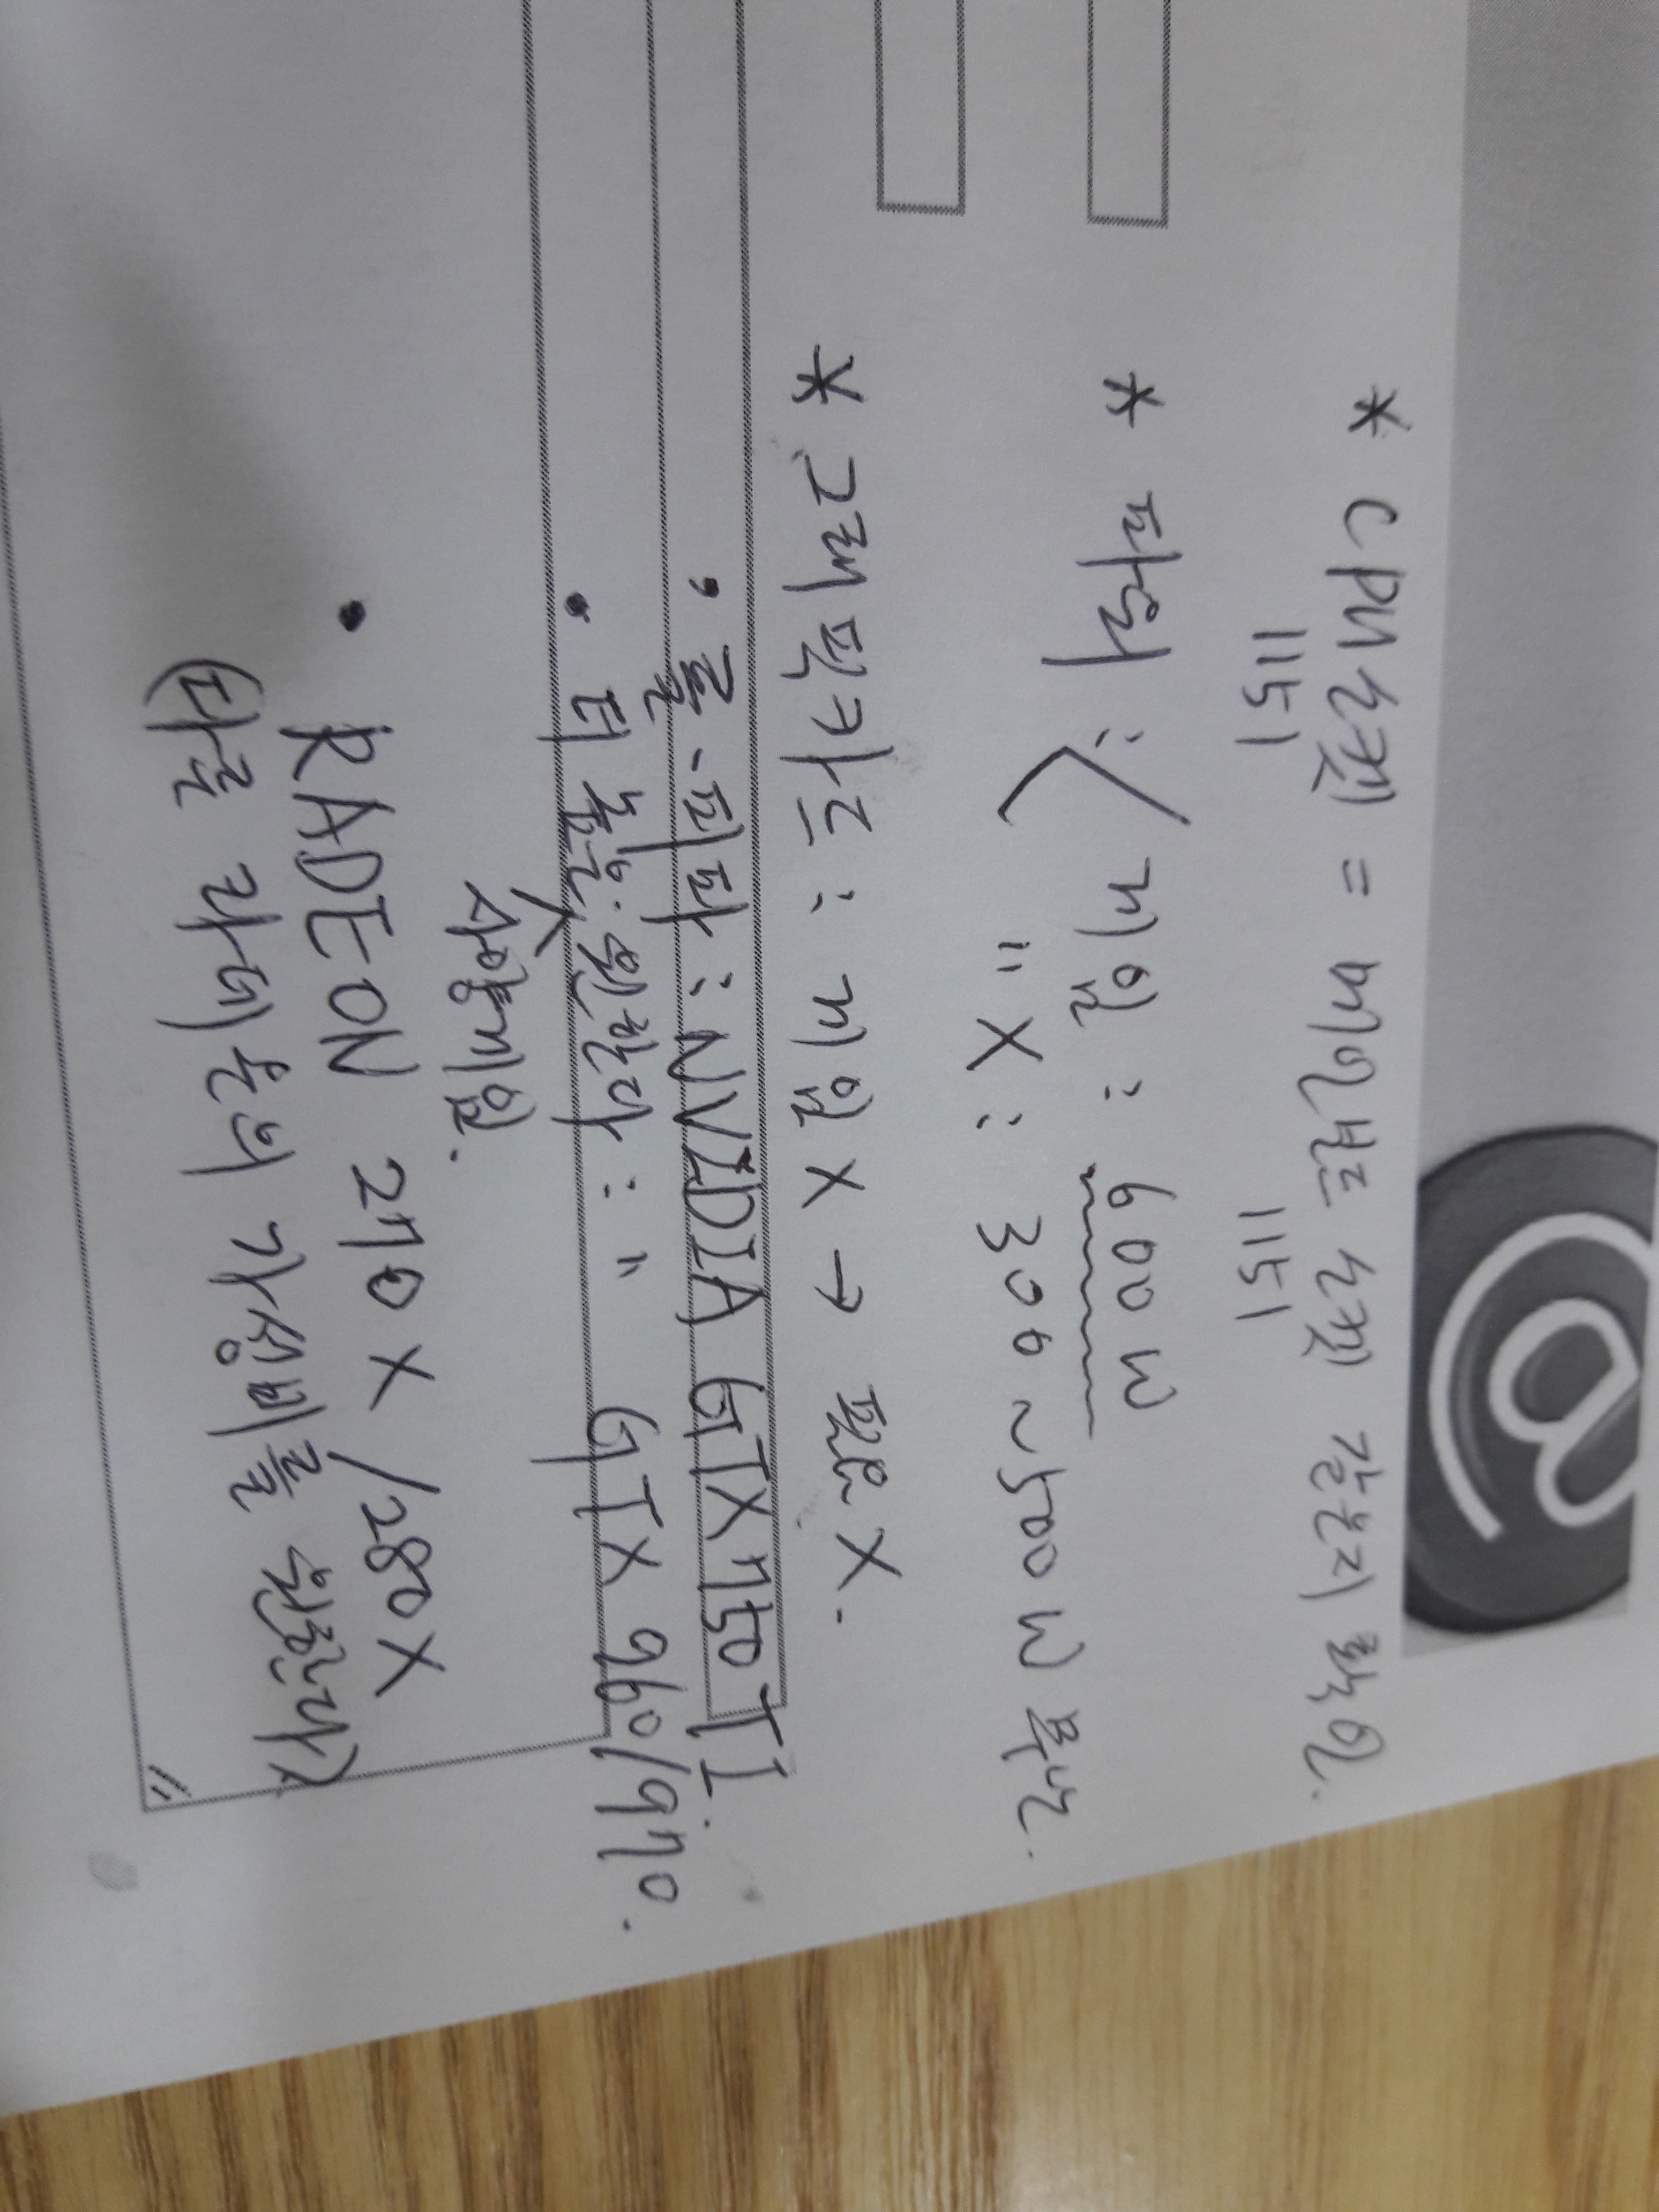 * CPU소켓 = 메인보드 소켓 같은지 확인.
1151 1151
* 파워 : 게임 : 600W
" X : 300~500W 무난.
* 그래픽카드 : 게임 X → 필요 X.
• 롤·피파 : NVIDIA GTX 750TI.
• 더 높은 원한다 : " GTX 960/970.
사양게임.
• RADEON 270X/280X
(다른 라데온의 가성비를 원한다)
@